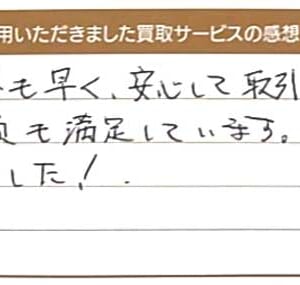 用いただきました買取サービスの感想
も早く、安心して取引
も満足しています。
した！.